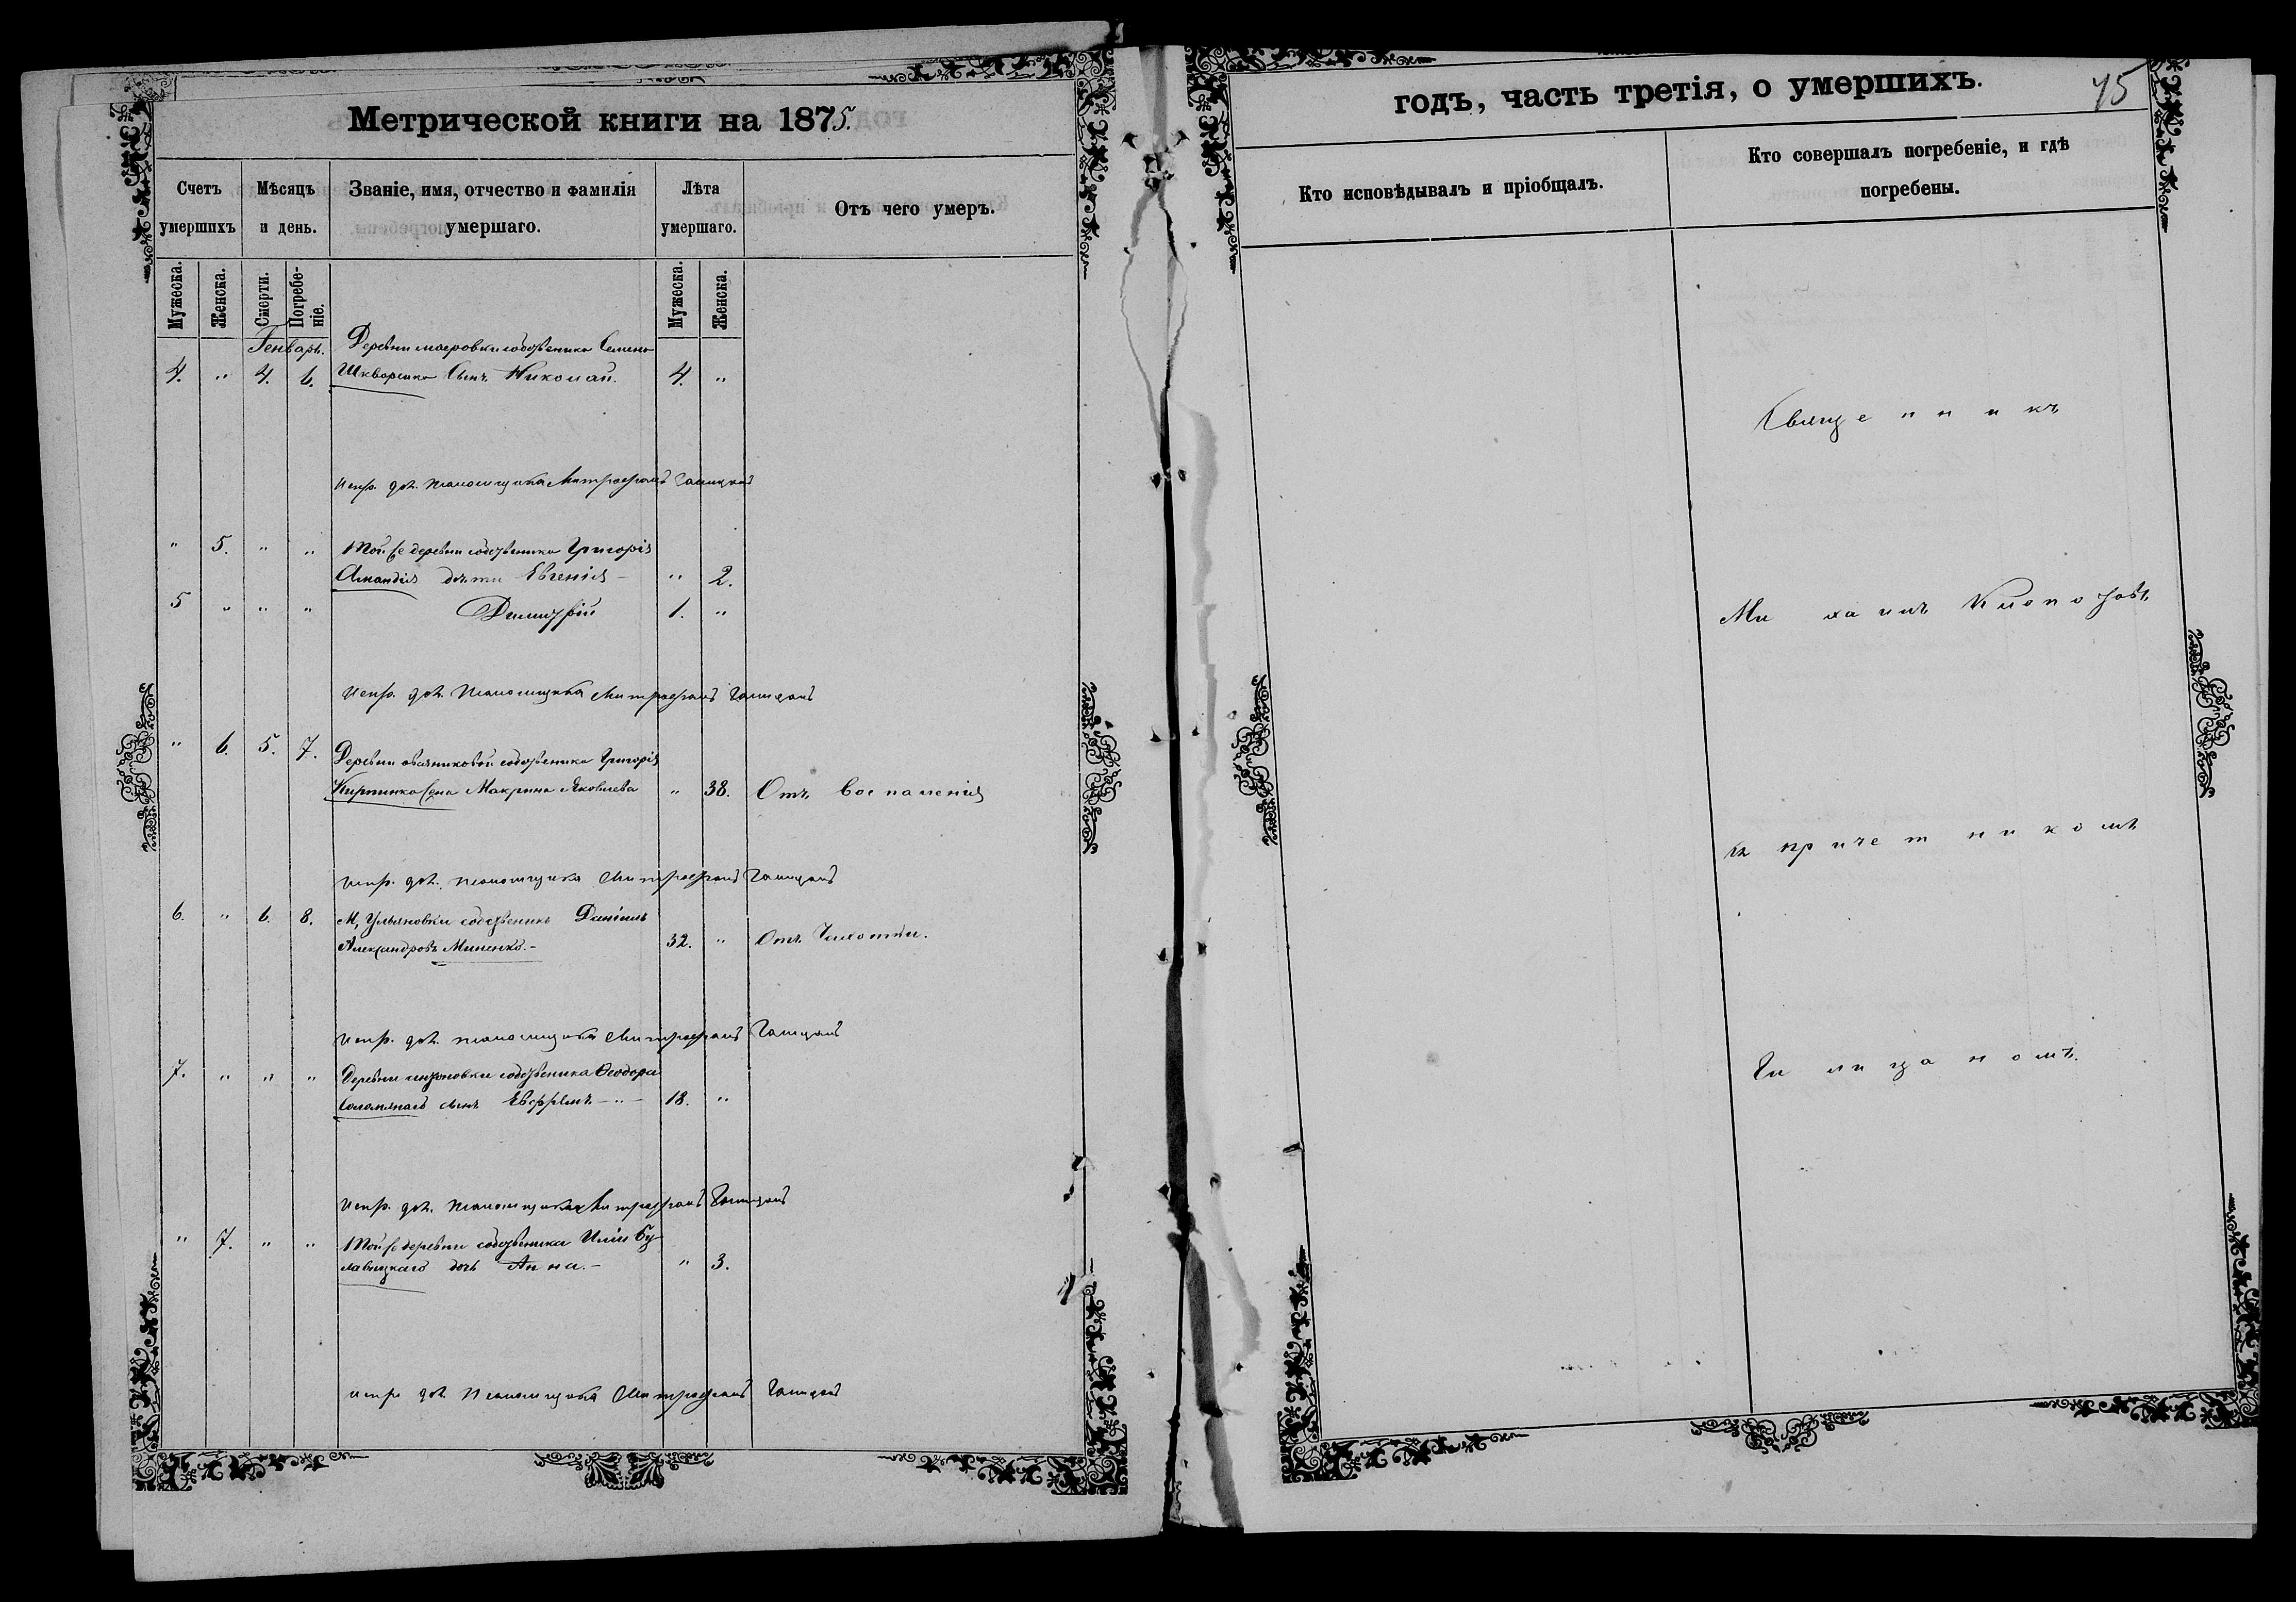 Метрической книги на 1875.
Счетъ умершихъ
Мѣсяцъ и день.
Званіе, имя, отчество и фамилія умершаго.
Лѣта умершаго.
Отъ чего умеръ.
Мужеска.
Женска.
Смерти.
Погребе-
ніе.
Мужеска.
Женска.
Генварь.
Деревни собственика Семена
4. " 4. 6. Шкворина Сынъ Николай. 4. "
Испр. дол. псаломщика Митрофанъ Галицкій
" 5. " " Той же деревни собственика Григорія
дѣти Евгенія – " 2.
5 " " " Димитрій 1. "
Испр. дол. псаломщика Митрофанъ
" 6. 5. 7. Деревни собственика Григорія
жена Макрина Яковлева " 38. Отъ воспаленія
Испр. дол. псаломщика Митрофанъ
6. " 6. 8. М, Ульяновки собственикъ Даніилъ
Александровъ Миненко. – 32. " Отъ Чахотки.
Испр. дол. псаломщика Митрофанъ
7. " " " Деревни собственика Ѳеодора
сынъ Евфремъ – " – 18. "
Испр. дол. псаломщика Митрофанъ
" 7. " " Той же деревни собственика Иліи Бу-
лавицкаго дочь Анна. – " 3.
Испр. дол. псаломщика Митрофанъ
годъ, часть третія, о умершихъ.
45
Кто исповѣдывалъ и пріобщалъ.
Кто совершалъ погребеніе, и гдѣ
погребены.
Священникъ
Михаилъ
съ причетникомъ